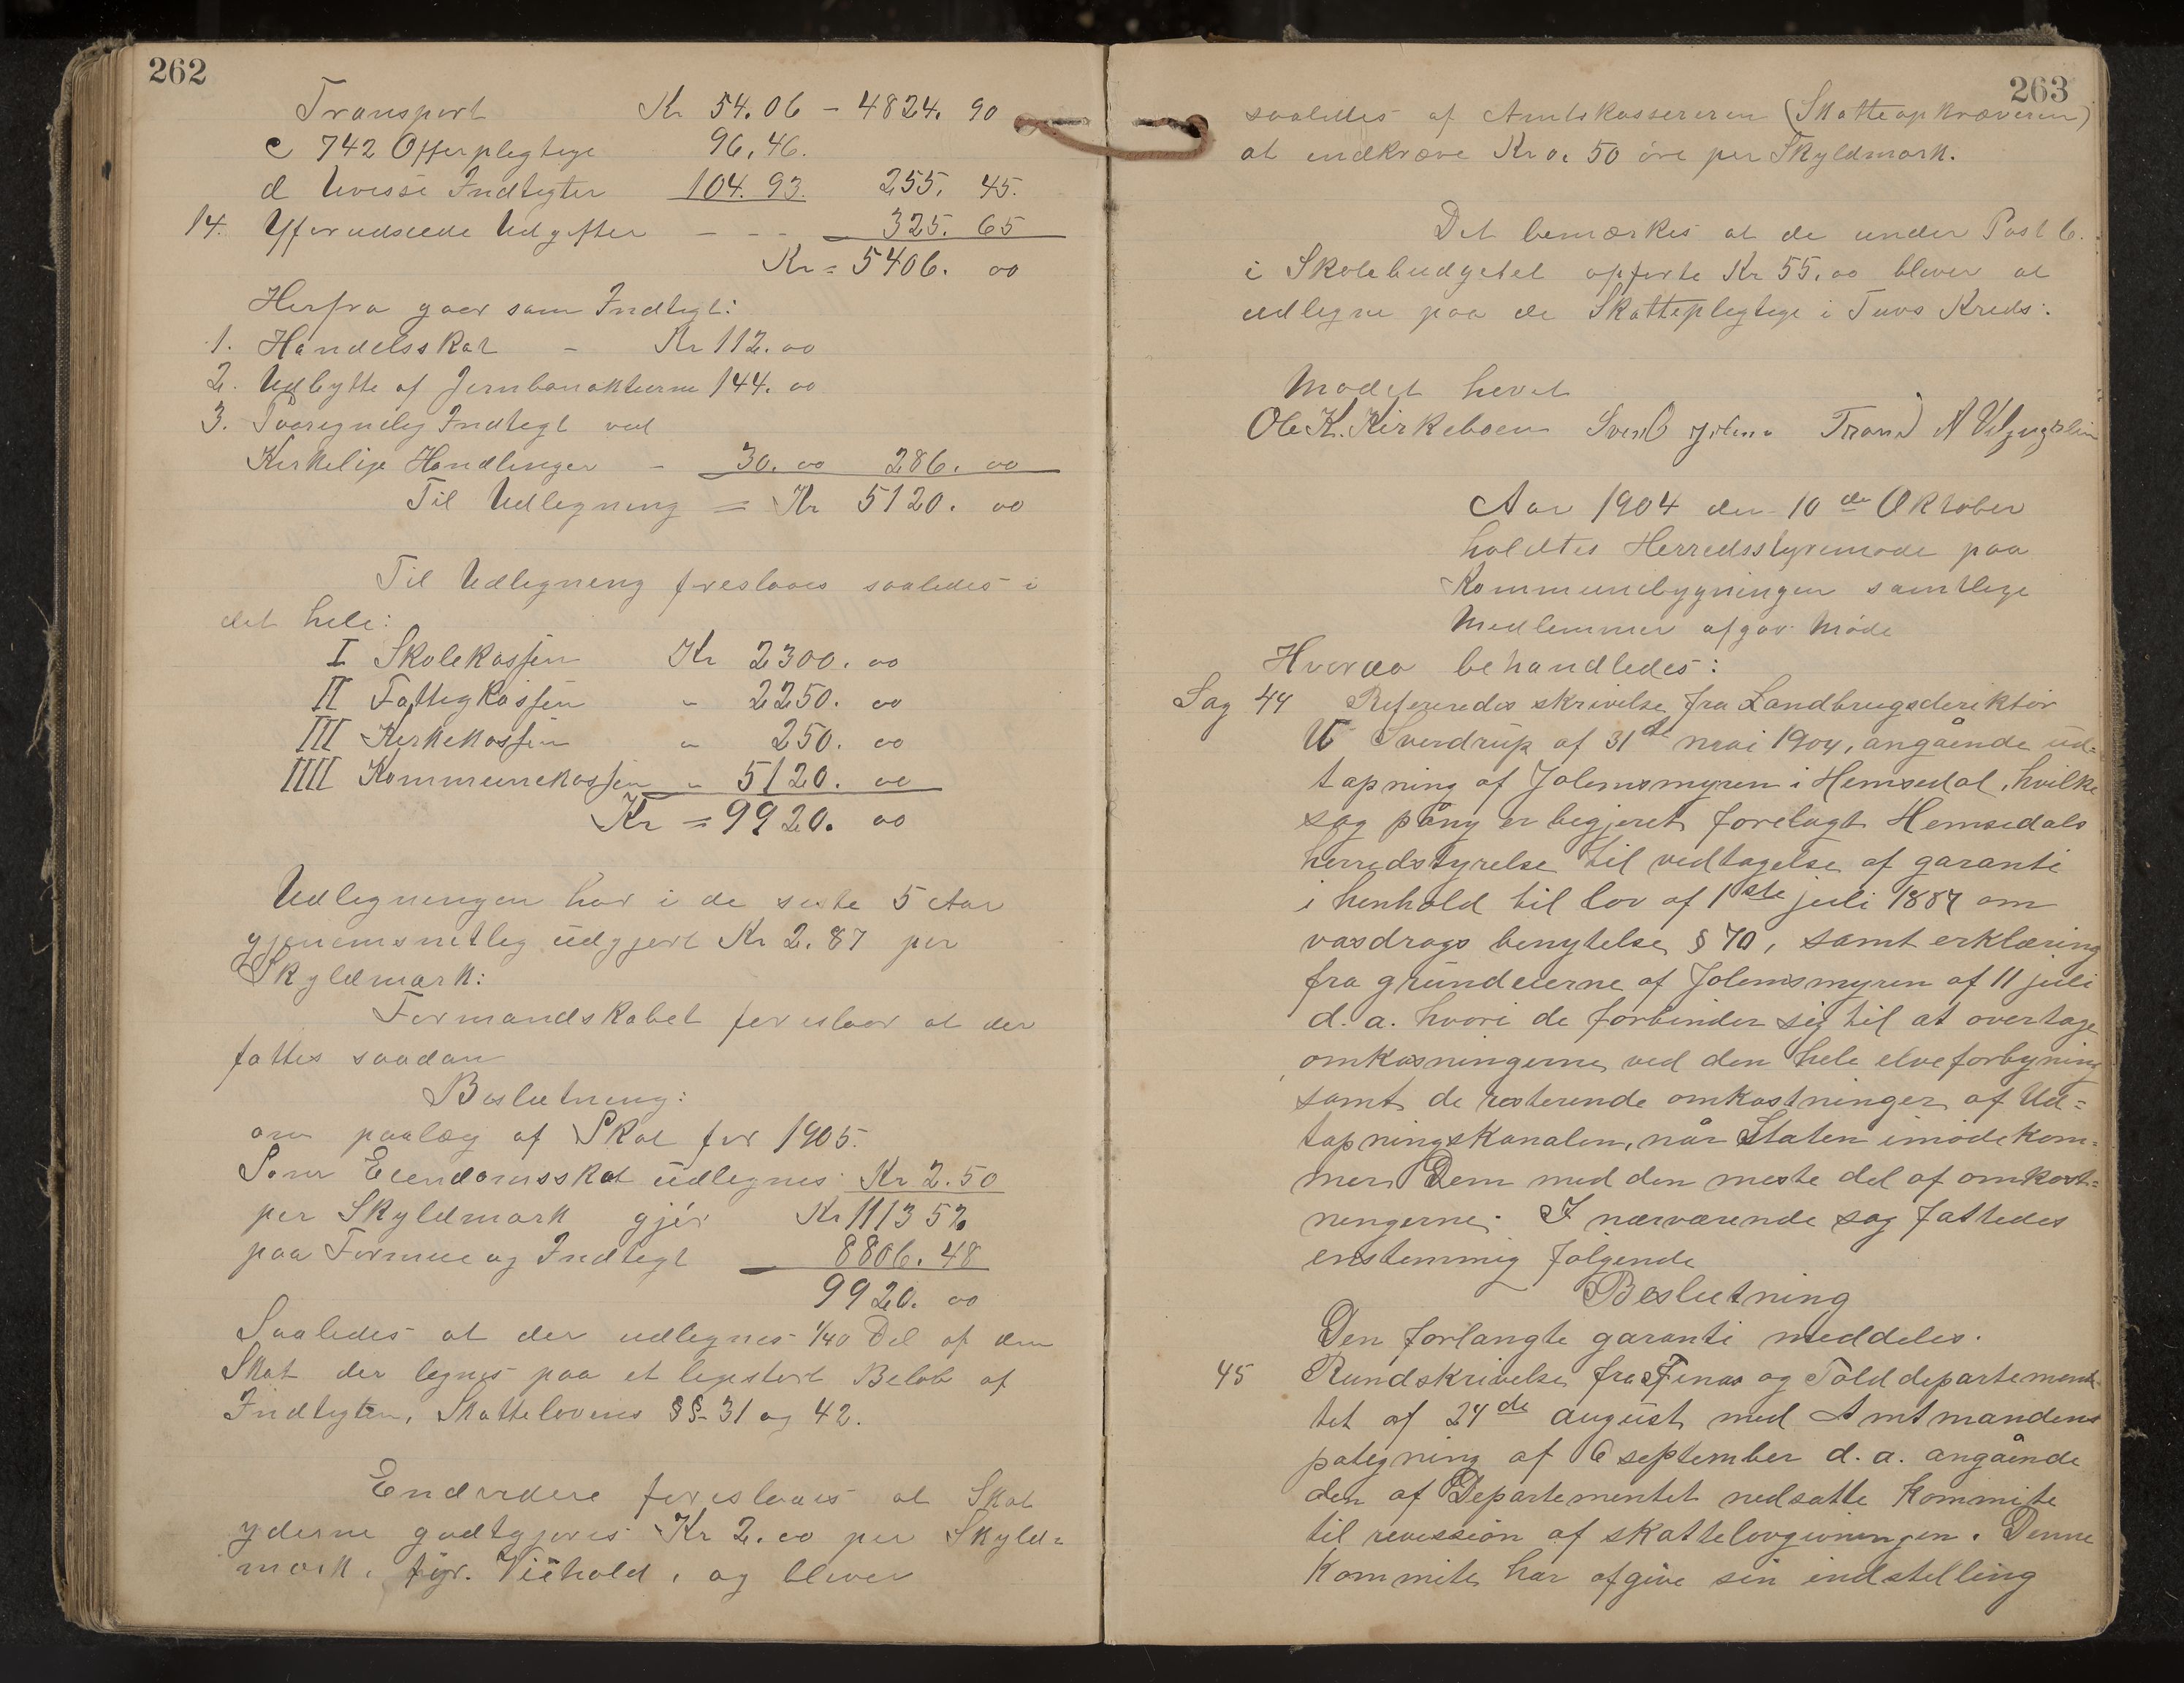 262
Transport Kr 54.06 - 4824. 90
c 742 Offerplegtige 96.46.
d Uvisse Indtegter 104.93. 255. 45.
14. Uforudseede Udgifter - - - 325. 65
Kr = 5406. 00
Herfra gaar som Indtegt:
1. Handelsskat - Kr 112. 00
2. Udbytte af Jernbaneaktierne 144. 00
3. Paaregnelig Indtegt ved
Kirkelige Handlinger - 30. 00 286. 00
Til Udlegning = Kr 5120. 00
Til Udlegning foreslaaes saaledes i
det hele:
I Skolekassen Kr 2300. 00
II Fattigkassen " 2250. 00
III Kirkekassen " 250. 00
IIII Kommunekassen " 5120. 00
Kr = 9920. 00
Udlegningen har i de siste 5 Aar
gjenemsnitleg udgjort Kr 2.87 per
Skyldmark:
Formandskabet foreslaar at der
fattes saadan
Beslutning:
om paalæg af Skat for 1905.
Som Eiendomsskat udlegnes Kr 2.50
per Skyldmark gjør Kr 1113 52
paa Formue og Indtegt 8806. 48
9920. 00
Saaledes at der udlegnes 1/40 Del af den
Skat der legnes paa et legestort Beløb af
Indtegten, Skattelovens §§ 31 og 42.
Endvidere foreslaaes at Skat
yderne godtgjøres Kr 2.00 per Skyld=
mark, før. Veihold, og bliver
263
saaledes af Amtskassereren (Skatteopkræveren)
at indkræve Kr 0. 50 øre per Skyldmark.
Det bemærkes at de under Post 6.
i Skolebudgetet opførte Kr 55.00 bliver at
udlegne paa de Skattepligtige i Tuvs Kreds.
Mødet hevet
Ole K. Kirkeboen Svend Trond A
Aar 1904 den 10de Oktober
holdtes Herredsstyremøde paa
Kommunebygningen samtlige
Medlemmer afgav Møde
Hvorda behandledes:
Sag 44 Refereredes skrivelse fra Landbrugsderiktør
Sverdrup af 31de mai 1904, angående ud=
tapning af Jolemsmyren i Hemsedal, hvilke
sag påny er begjeret forelagt Hemsedals
herredstyrelse til vedtagelse af garanti
i henhold til lov af 1ste juli 1887 om
vasdrags benytelse § 70, samt erklæring
fra grundeierne af Jolemsmyren af 11 juli
d. a. hvori de forbinder sig til at overtage
omkosningerne ved den hele elveforbyning
samt de resterende omkostninger af Ud=
tapningskanalen, når Staten imødekom=
mer Dem med den meste del af omkost=
ningerne. I nærværende sag fattedes
enstemmig følgende
Beslutning
Den forlangte garanti meddeles.
45 Rundskrivelse fra Finas og Tolddepartemen
tet af 24de august med Amtmandens
pategning af 6 september d. a. angående
den af Departementet nedsatte Kommite
til revession af skattelovgivningen. Denne
Kommite har afgive sin indstelling